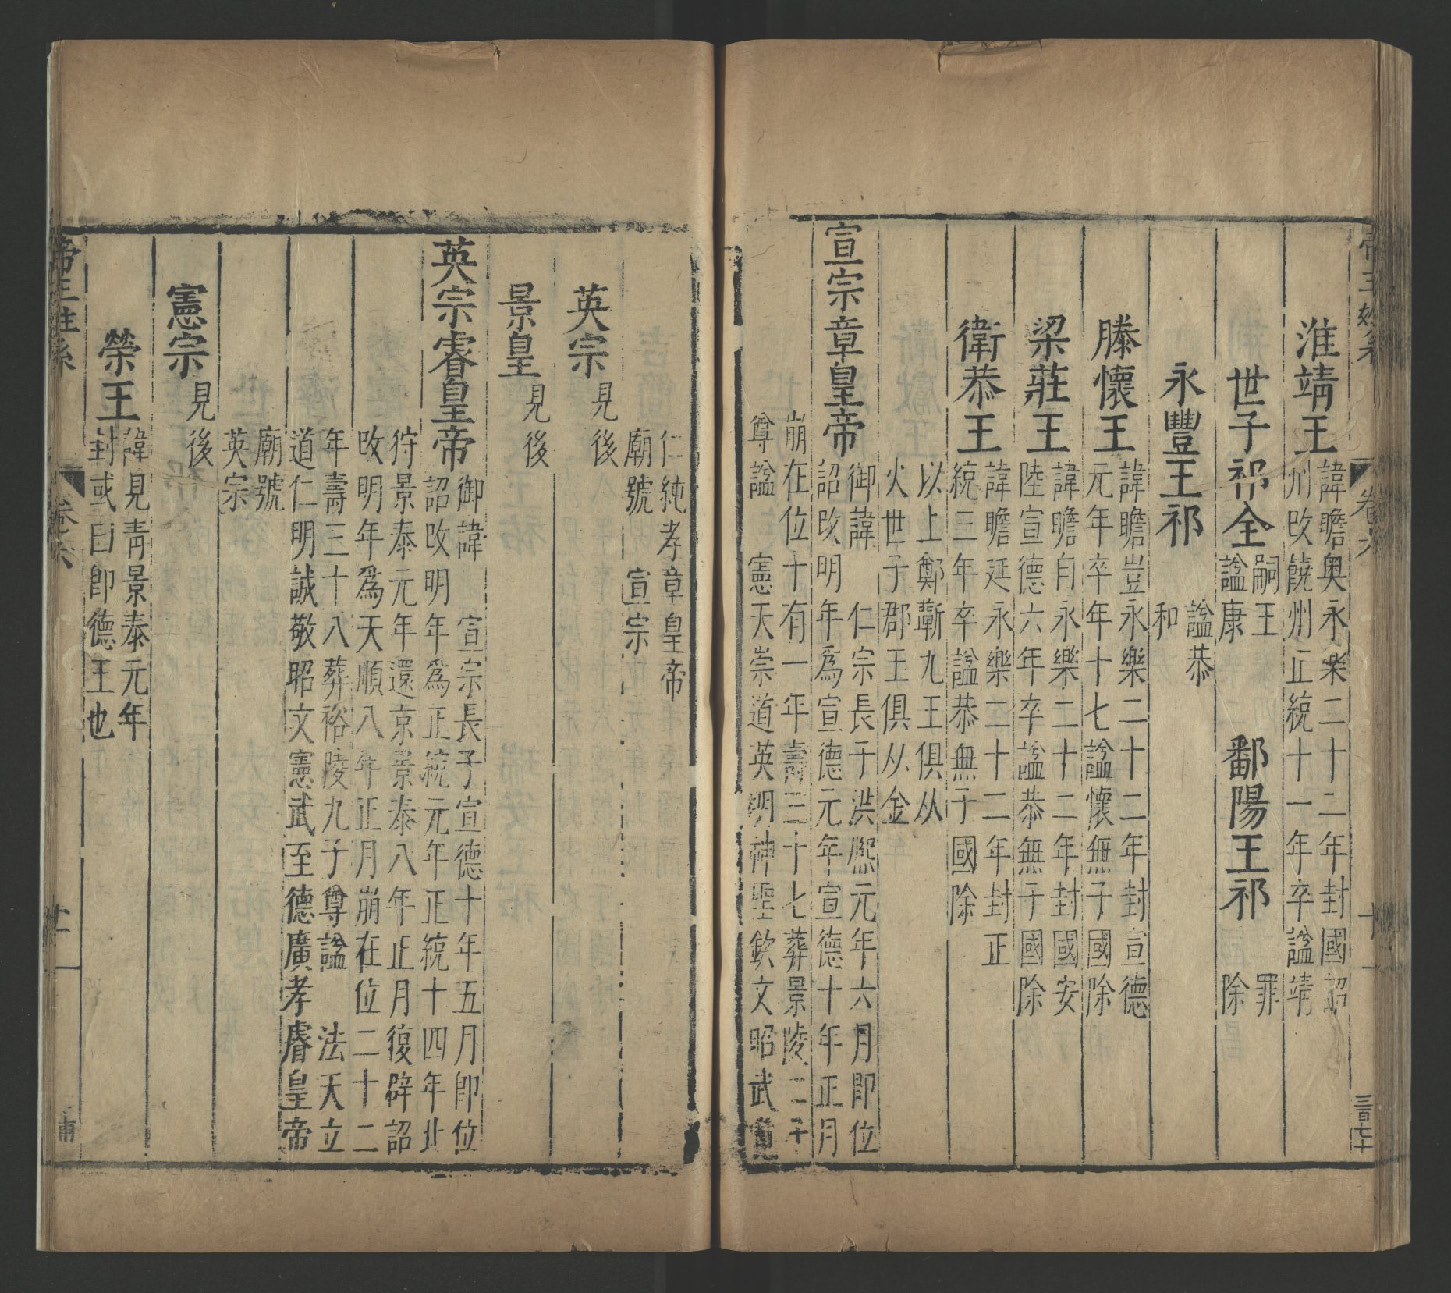 淮靖王諱瞻奥永樂二十二年封國韶
州改饒州正統十一年卒諡靖
世子祁全嗣王
諡康
鄱陽王祁罪
除
永豐王祁諡恭
和
滕懷王諱瞻豈永樂二十二年封宣德
元年卒年十七諡懷無子國除
梁莊王諱瞻自永樂二十二年封國安
陸宣德六年卒諡恭無子國除
衛恭王諱瞻延永樂二十二年封正
統三年卒諡恭無子國除
以上鄭蘄九王俱从
火世子郡王俱从金
宣宗章皇帝御諱 仁宗長子洪熙元年六月即位
詔改明年爲宣德元年宣德十年正月
崩在位十有一年壽三十七葬景陵二子
尊諡 憲天崇道英明神聖欽文昭武寬
仁純孝章皇帝
廟號 宣宗
英宗見後
景皇見後
英宗睿皇帝御諱 宣宗長子宣德十年五月即位
詔改明年爲正統元年正統十四年北
狩景泰元年還京景泰八年正月復辟詔
改明年爲天順八年正月崩在位二十二
年壽三十八葬裕陵九子尊諡 法天立
道仁明誠敬昭文憲武至德廣孝睿皇帝
廟號
英宗
憲宗見後
榮王諱見青景泰元年
封或曰卽德王也
帝王姓系 卷六